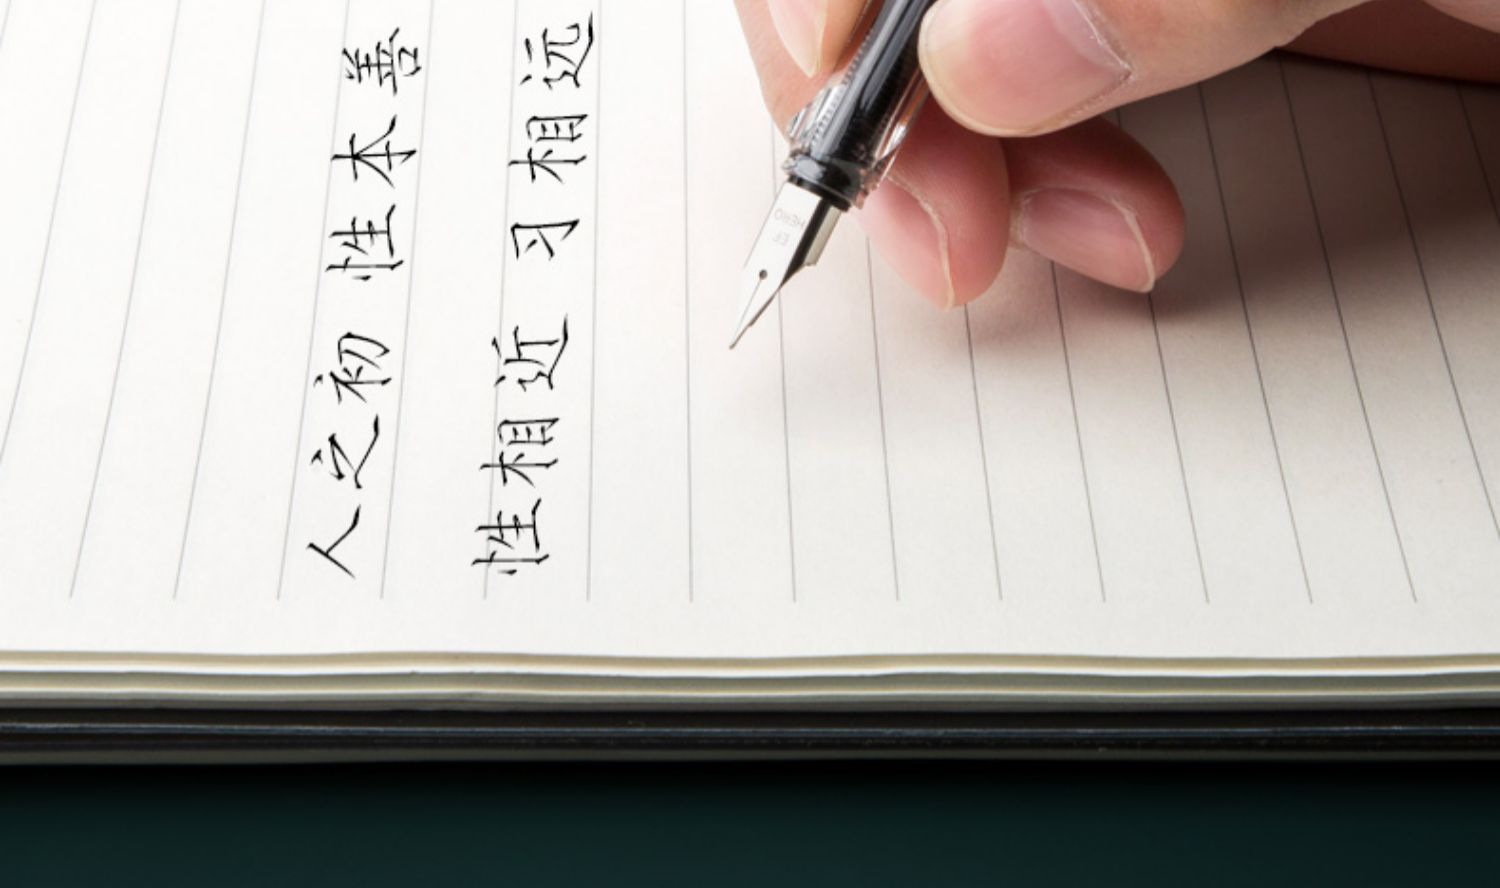 人之初 性本善
性相近 习相远
HERO
EF